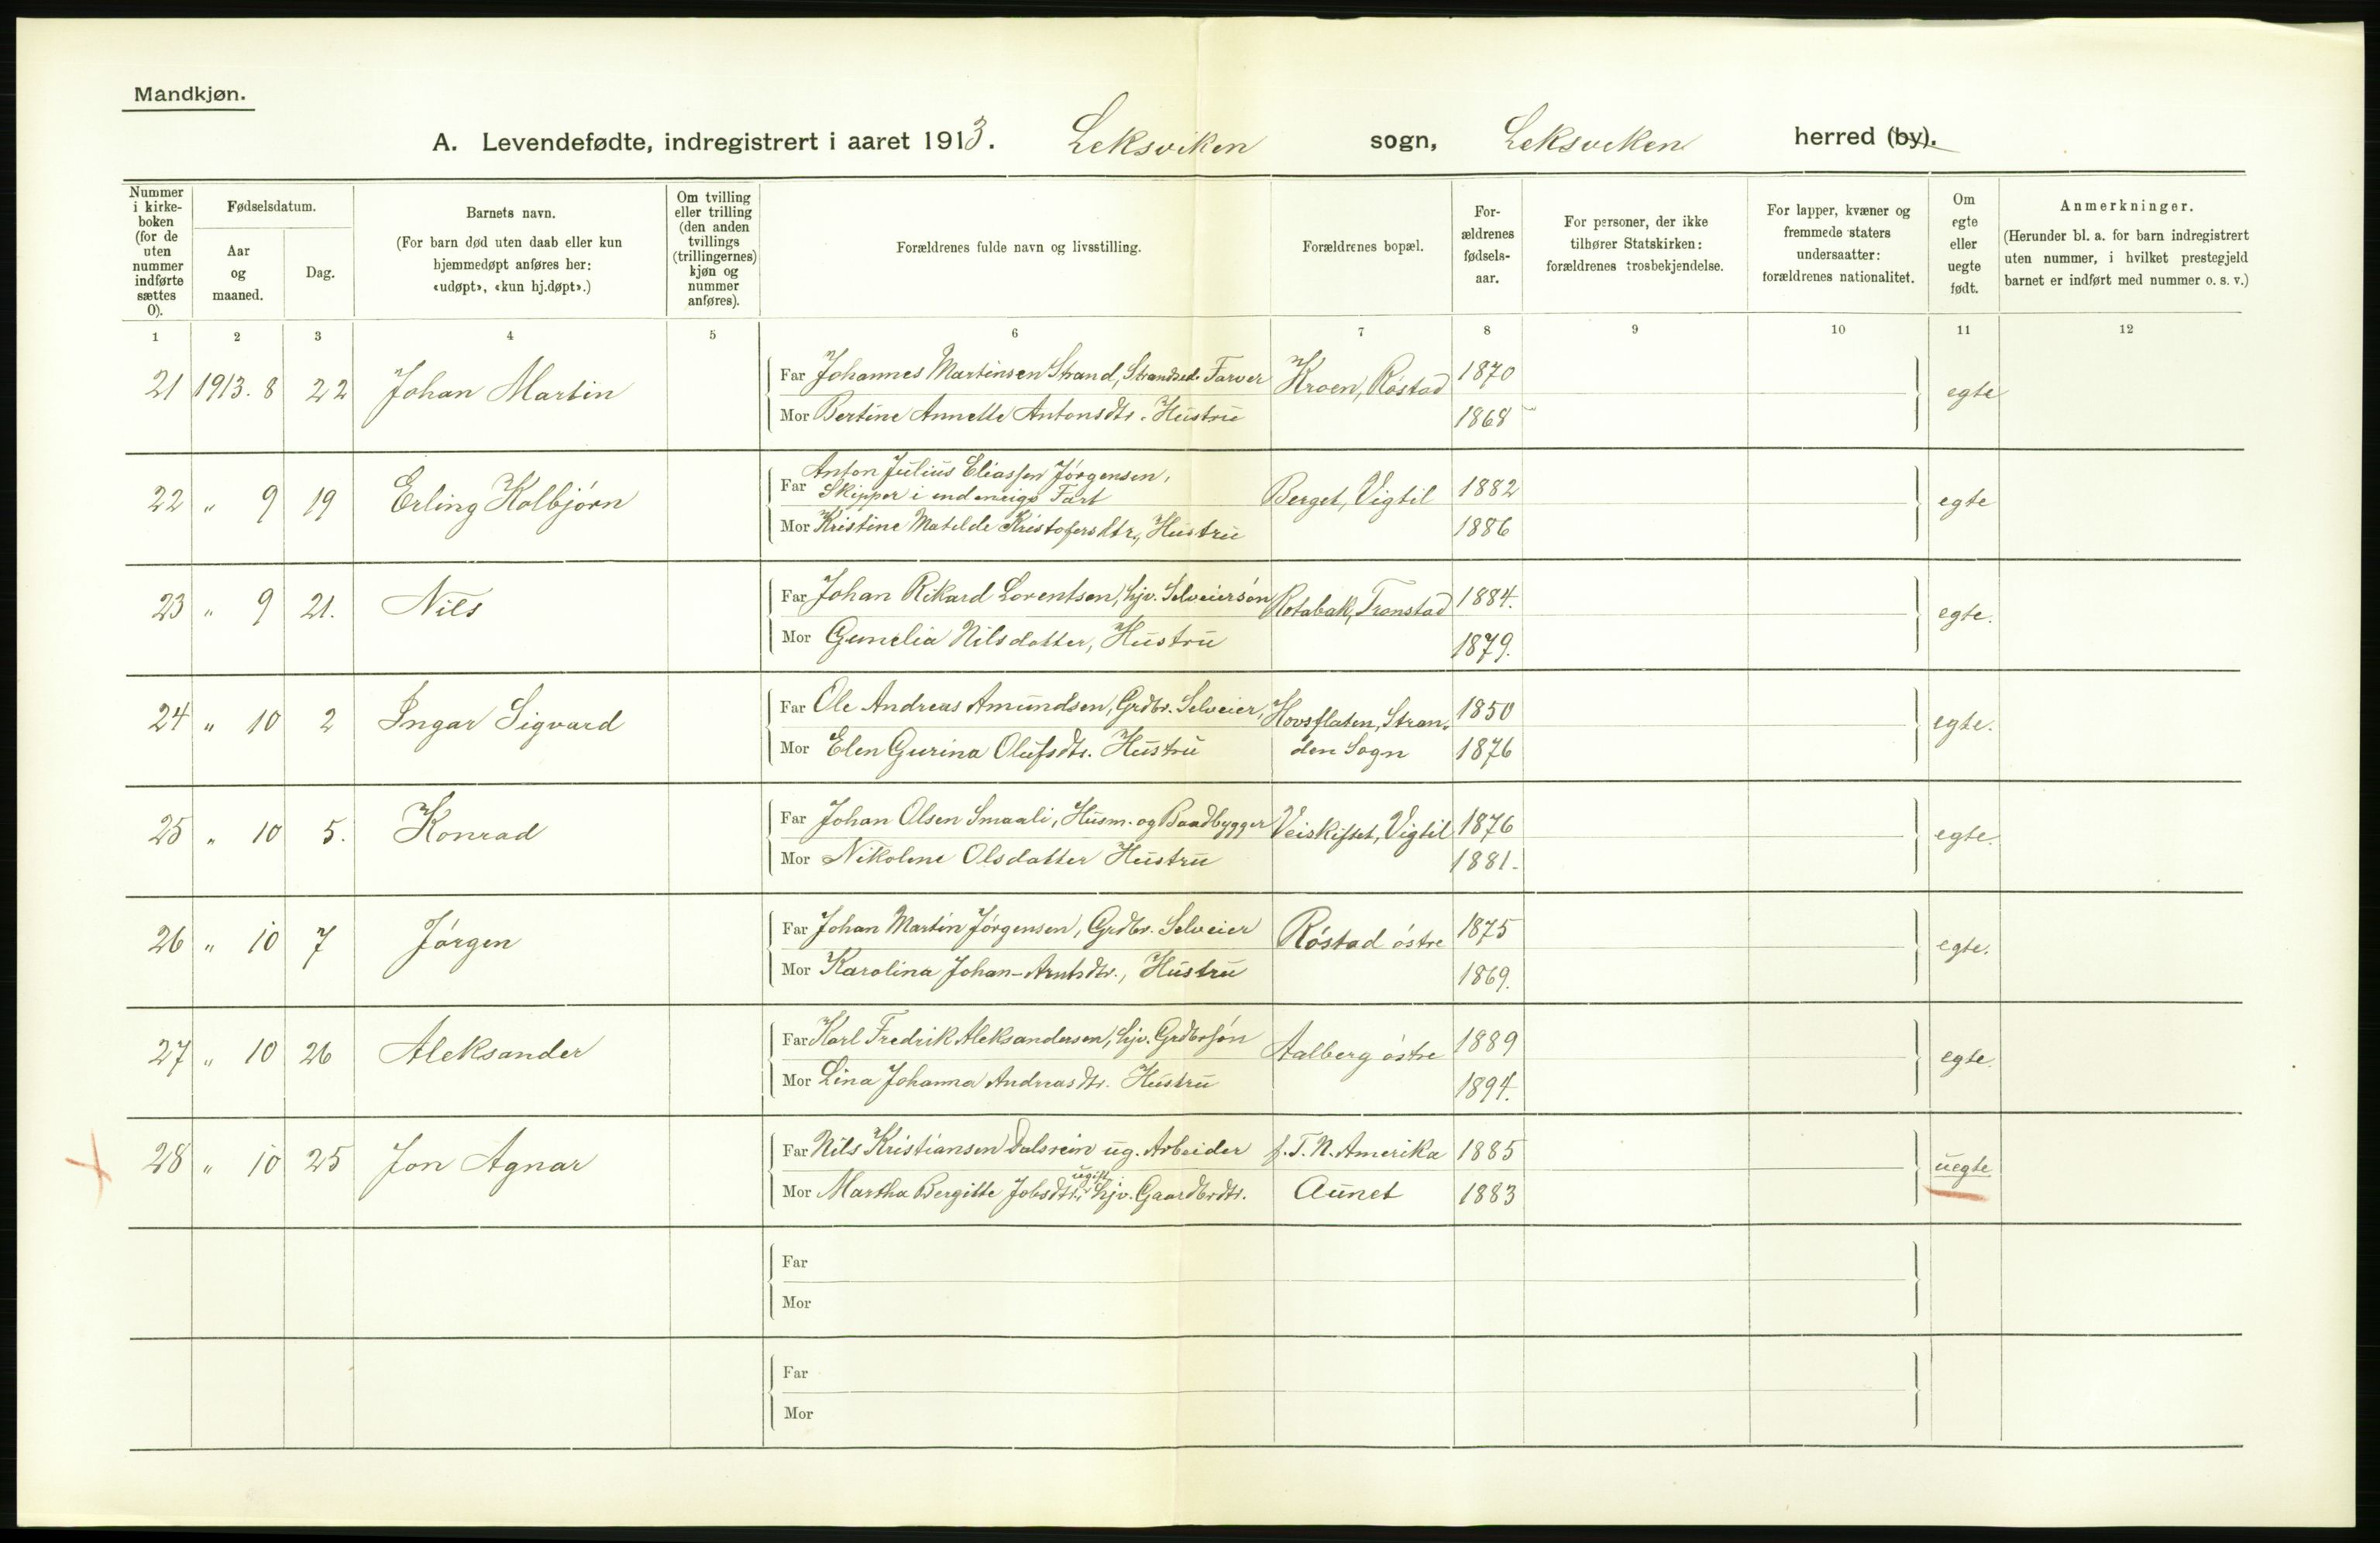 Mandkjøn.
A. Levendefødte, indregistrert i aaret 1913. Leksviken sogn, Leksviken herred (by).
Nummer i kirke-boken (for de uten nummer indførte sættes 0).
Fødselsdatum.
Aar og maaned.
Dag.
Barnets navn.
(For barn død uten daab eller kun hjemmedøpt anføres her: «udøpt», «kun hj.døpt».)
Om tvilling eller trilling (den anden tvillings (trillingernes) kjøn og nummer anføres).
Forældrenes fulde navn og livsstilling.
Forældrenes bopæl.
For-ældrenes fødsels-aar.
For personer, der ikke tilhører Statskirken: forældrenes trosbekjendelse.
For lapper, kvæner og fremmede staters undersaatter: forældrenes nationalitet.
Om egte eller uegte født.
Anmerkninger.
(Herunder bl. a. for barn indregistrert uten nummer, i hvilket prestegjeld barnet er indført med nummer o. s. v.)
1 2 3 4 5 6 7 8 9 10 11 12
21 1913. 8 22 Johan Martin Far Johannes Martinsen Strand, Strandsed. Farver Kroen, Róstad 1870 egte
Mor Bertine Annette Antonsdtr. Hustru 1868
22 " 9 19 Erling Kolbjórn Far Anton Julius Eliassen Jórgensen,
Skipper i indenrigs Fart Berget, Vigtil 1882 egte
Mor Kristine Matilde Kristofersdtr., Hustru 1886
23 " 9 21. Nils Far Johan Rikard Lorentsen, hjv. Selveiersón Rotabak, Tronstad 1884. egte.
Mor Gunelia Nilsdatter, Hustru 1879.
24 " 10 2 Ingar Sigvard Far Ole Andreas Amundsen, Grdbr. Selveier, Hovsflaten, Stran- 1850 egte.
Mor Elen Gurina Olufsdtr. Hustru den Sogn 1876
25 " 10 5. Konrad Far Johan Olsen Smaali, Husm. og Baadbygger Veiskiftet, Vigtil 1876 egte.
Mor Nikoline Olsdatter Hustru 1881.
26 " 10 7 Jórgen Far Johan Martin Jórgensen, Grdbr. Selveier Róstad óstre 1875 egte.
Mor Karolina Johan-Arntsdtr., Hustru 1869.
27 " 10 26 Aleksander Far Karl Fredrik Aleksandersen, hjv. Grdbrsón Aalberg óstre 1889 egte.
Mor Lina Johanna Andreasdtr. Hustru 1894.
28 " 10 25 Jon Agnar Far Nils Kristiansen Dalsrein ug. Arbeider f. T. N. Amerika 1885 uegte
Mor Martha Bergitte Jobsdtr., ugift hjv. Gaardbrdtr. Aunet 1883
Far
Mor
Far
Mor